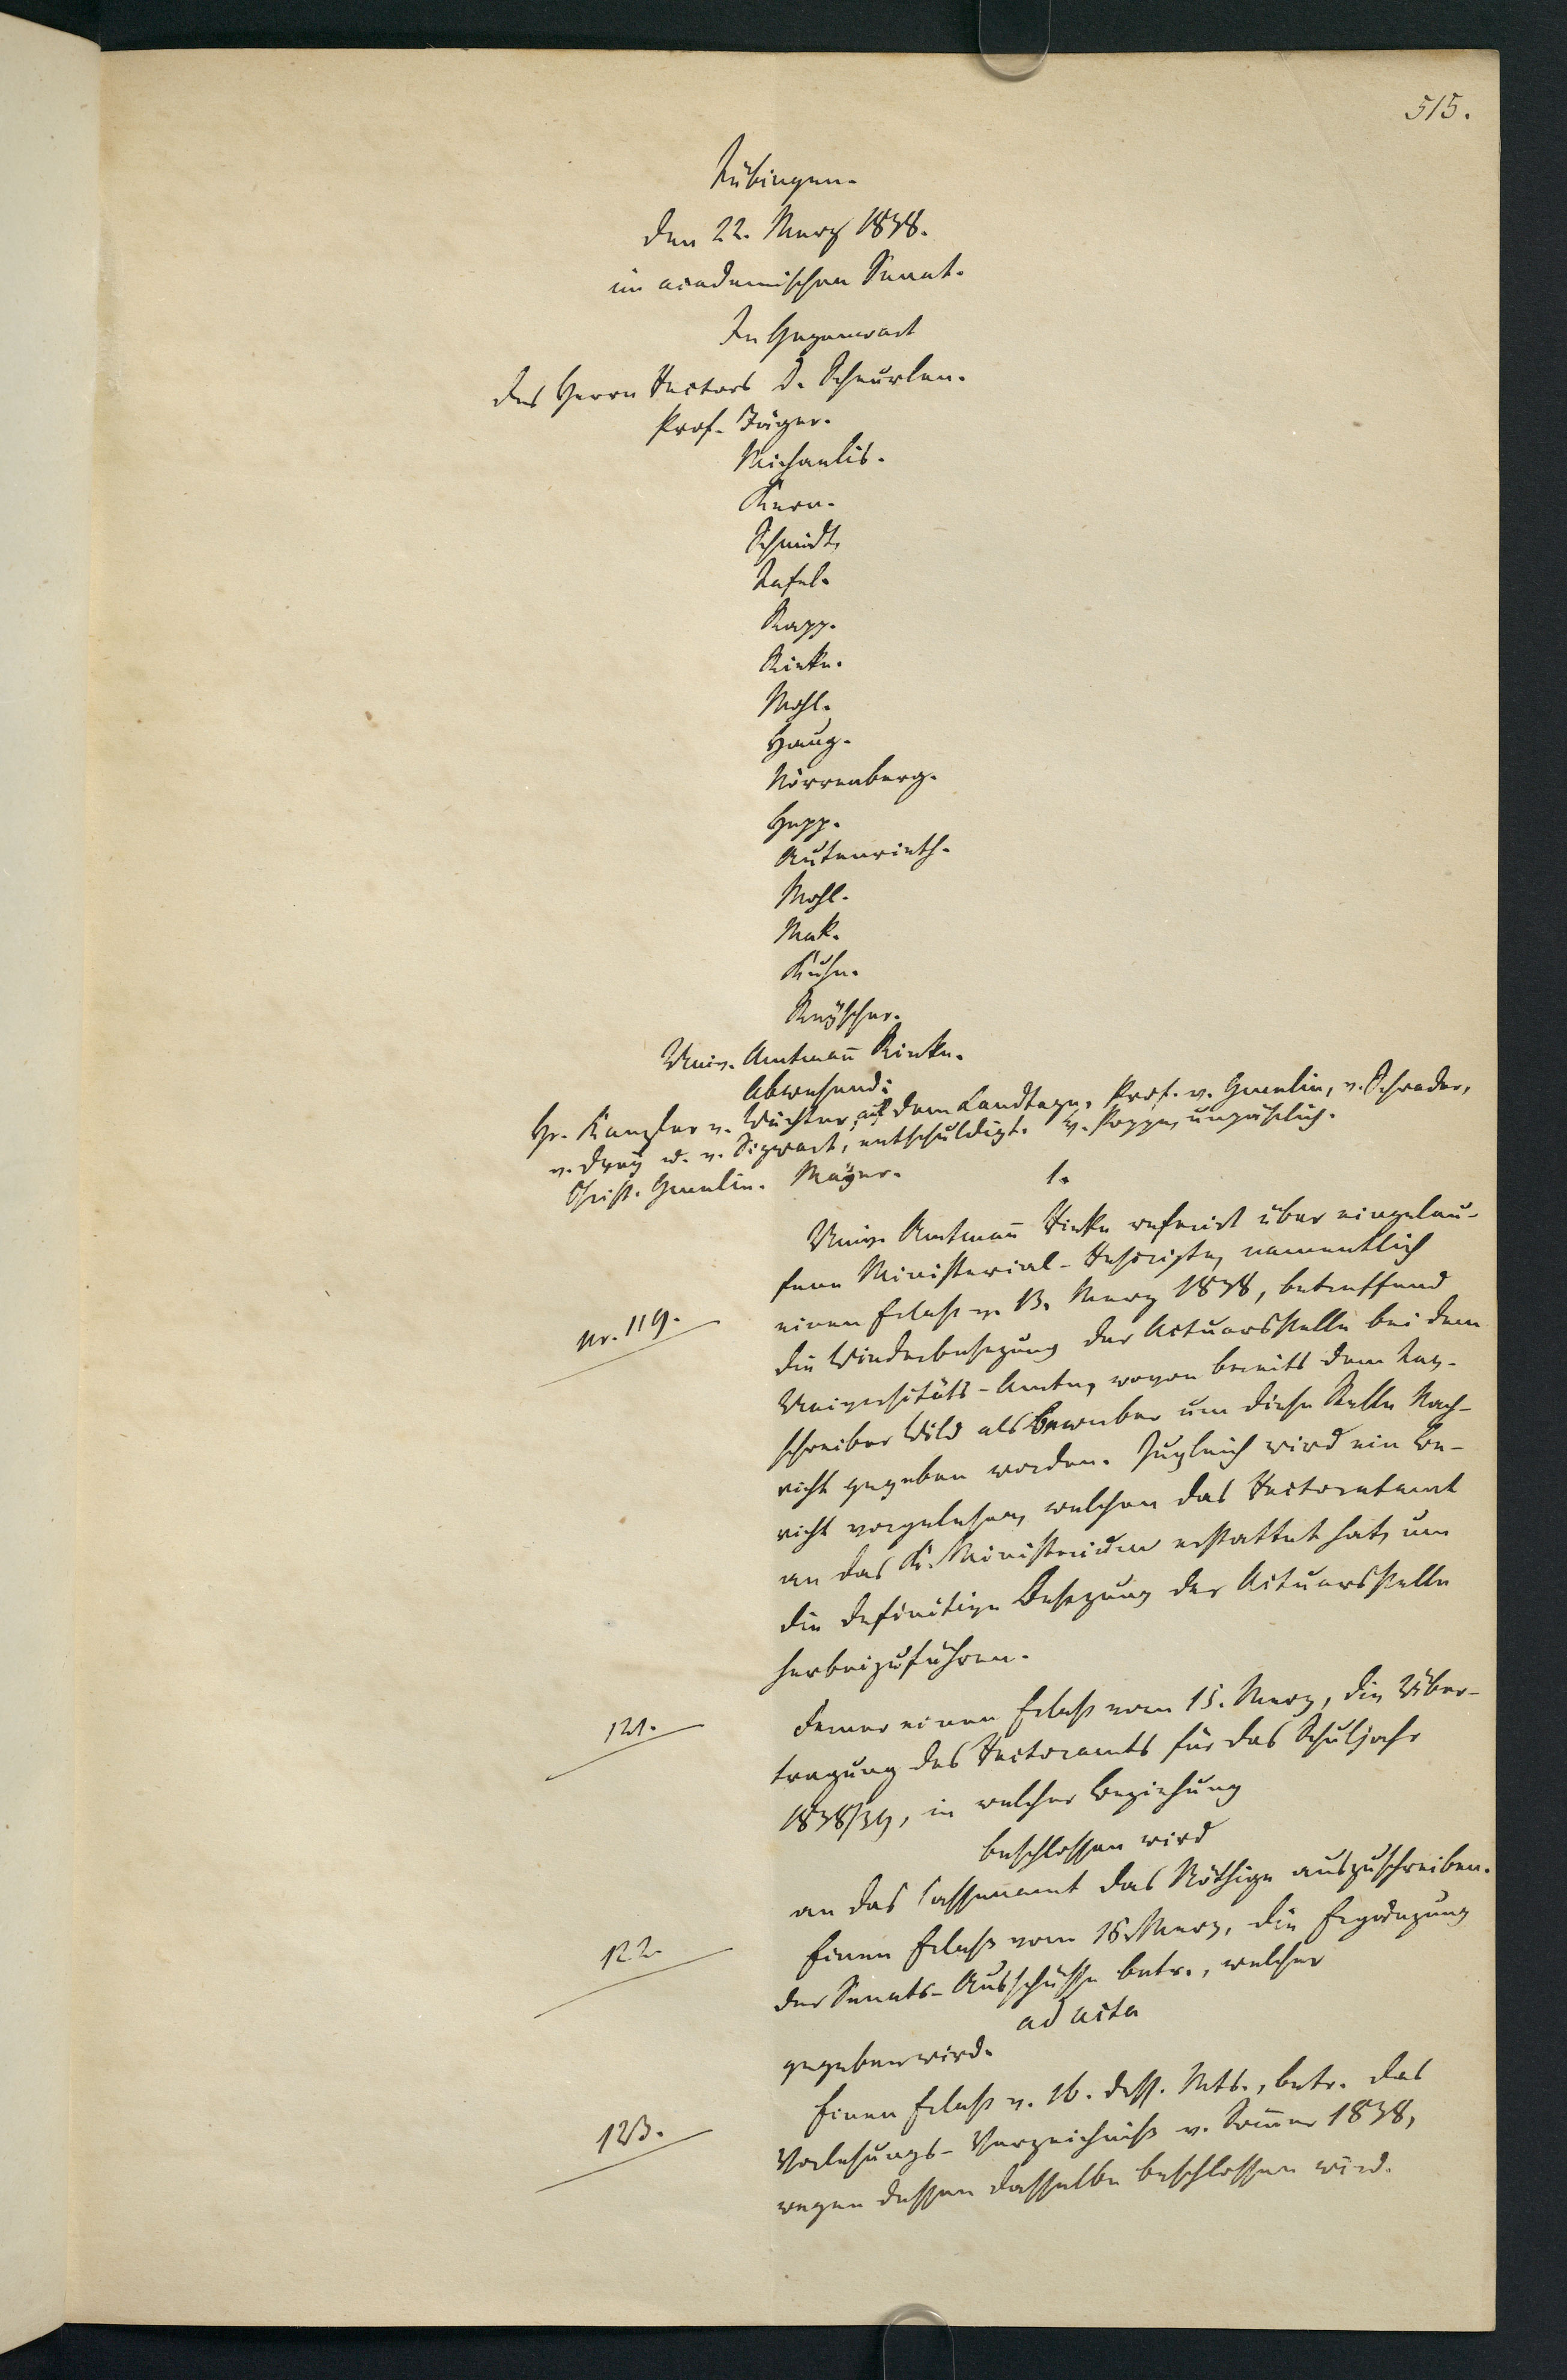 515.
Tübingen.
den 22. Merz 1838.
im academischen Senat.
In Gegenwart
des Herrn Rectors D. Scheurlen.
Prof. Jäger.
Michaelis.
Kern.
Schmidt,
Tafel.
Rapp.
Rieke.
Mohl.
Haug.
Nörrenberg.
Hepp.
Autenrieth.
Mohl.
Mak.
Kuhn.
Reÿscher.
Univ. Amtmann̄ Rieke.
Abwesend:
Hr. Kanzler v. Wächter, auf dem Landtage, Prof. v. Gmelin, v. Schrader,
v. Dreÿ u. v. Sigwart, entschuldigt. v. Poppe, unpäßlich.
Christ. Gmelin. Maÿer.
1.
Univ. Amtmann̄ Rieke referirt über eingelau-
fene Ministerial-Rescripte, namentlich
Nr. 119.
einen Erlaß v. 13. Merz 1838, betreffend
die Wiederbesezung der Actuarsstelle bei dem
Universitäts-Amte, wovon bereits dem Tag-
schreiber Wild als Bewerber um diese Stelle Nach-
richt gegeben worden. Zugleich wird ein Be-
richt vorgelesen, welchen das Rectoratamt
an das K. Ministerium erstattet hat, um
die definitive Besezung der Actuarsstelle
herbeizuführen.
121.
Ferner einen Erlaß vom 15. Merz, die Über-
tragung des Rectoramts für das Schuljahr
1838/39, in welcher Beziehung
beschlossen wird
an das Cassenamt das Nöthige auszuschreiben.
122.
Einen Erlaß vom 16. Merz, die Ergänzung
der Senats-Ausschüsse betr., welcher
ad acta
gegeben wird.
123.
Einen Erlaß v. 16. dss. Mts., betr. das
Vorlesungs-Verzeichniß v. Som̄er 1838,
wegen dessen dasselbe beschlossen wird.